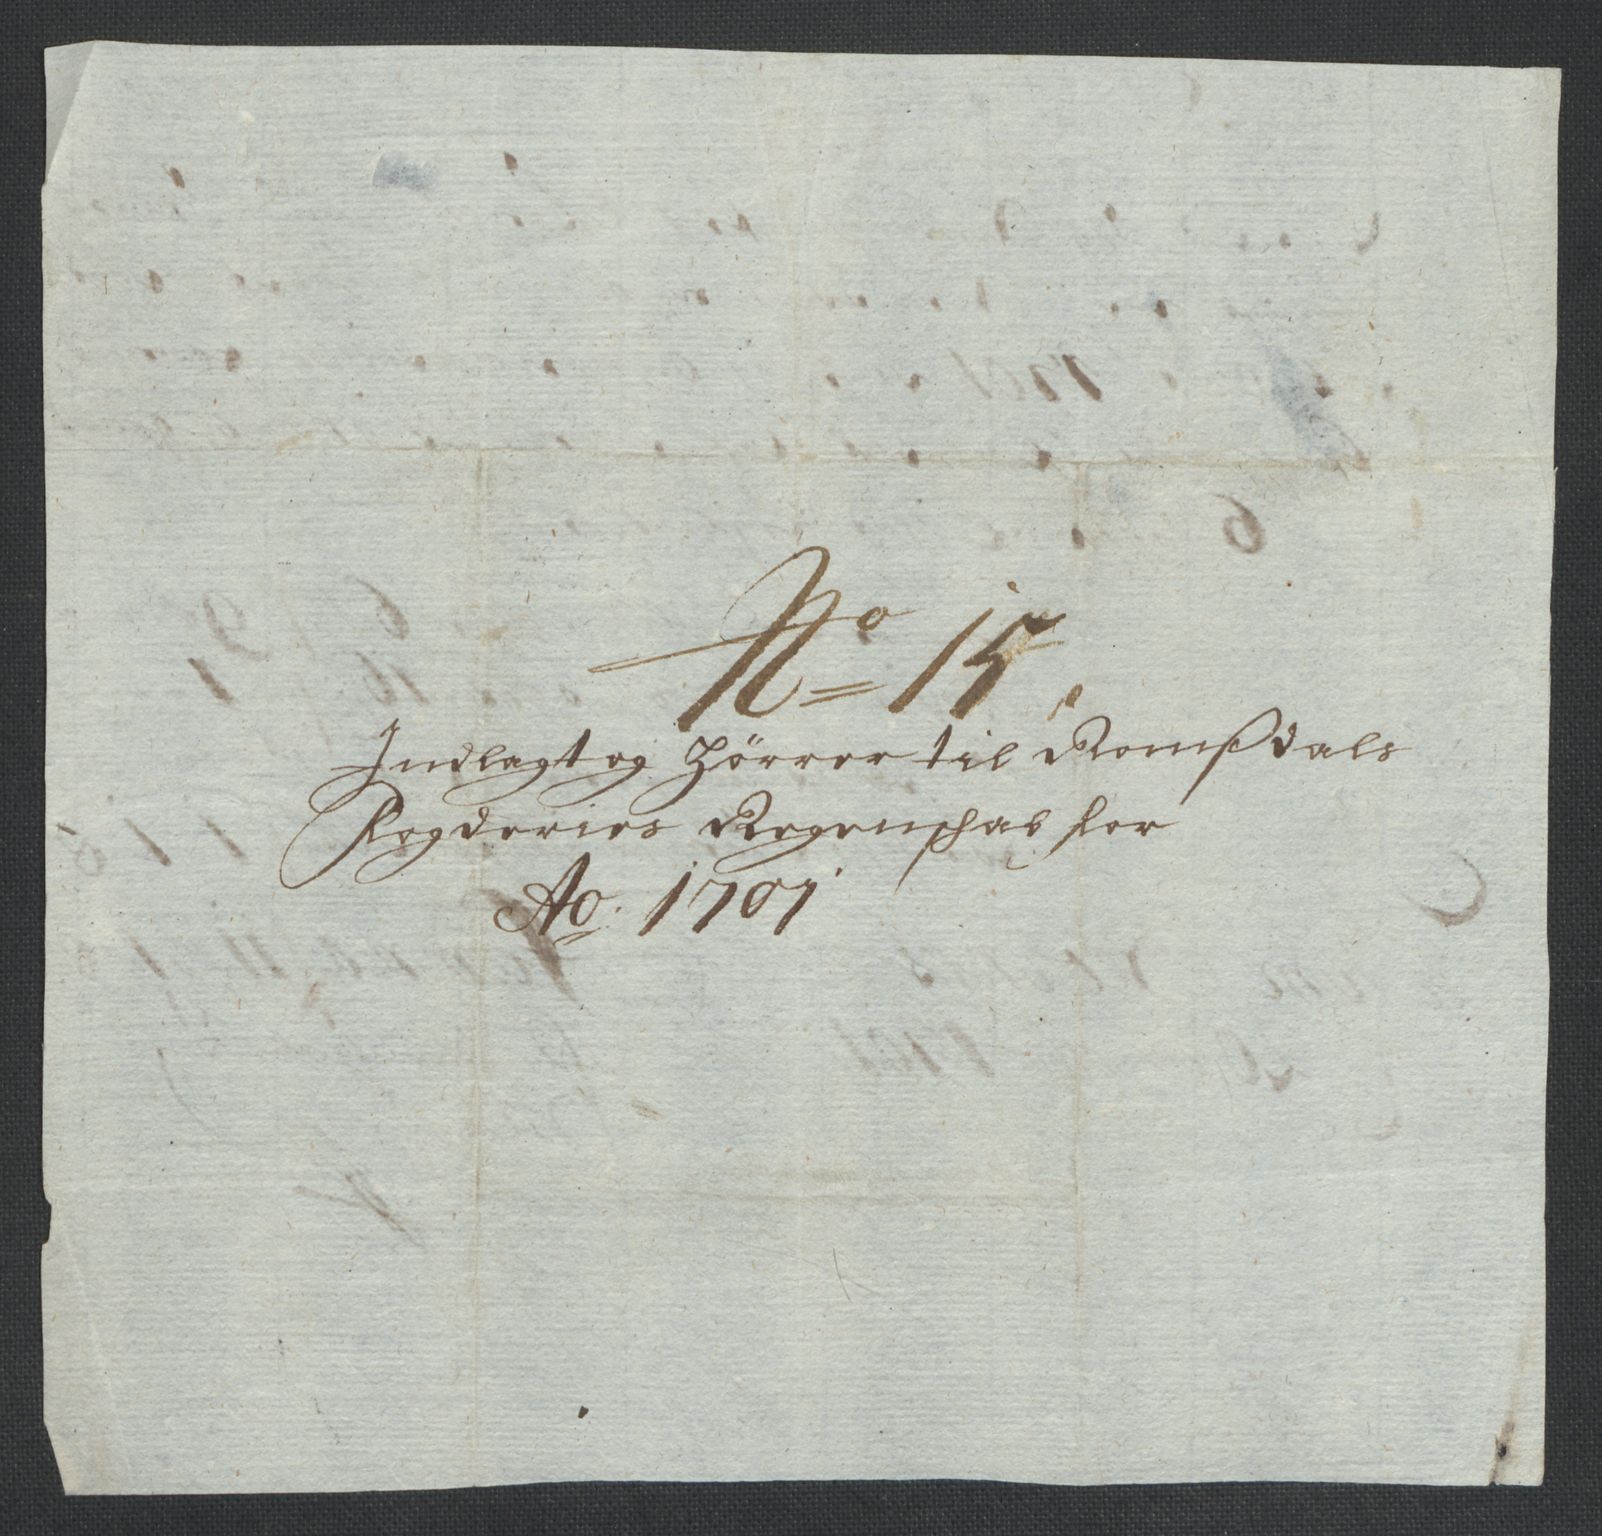 No 15,
Indlagt og Hörrer til Romßdals
Fogderies Regenschab for
Ao. 1701